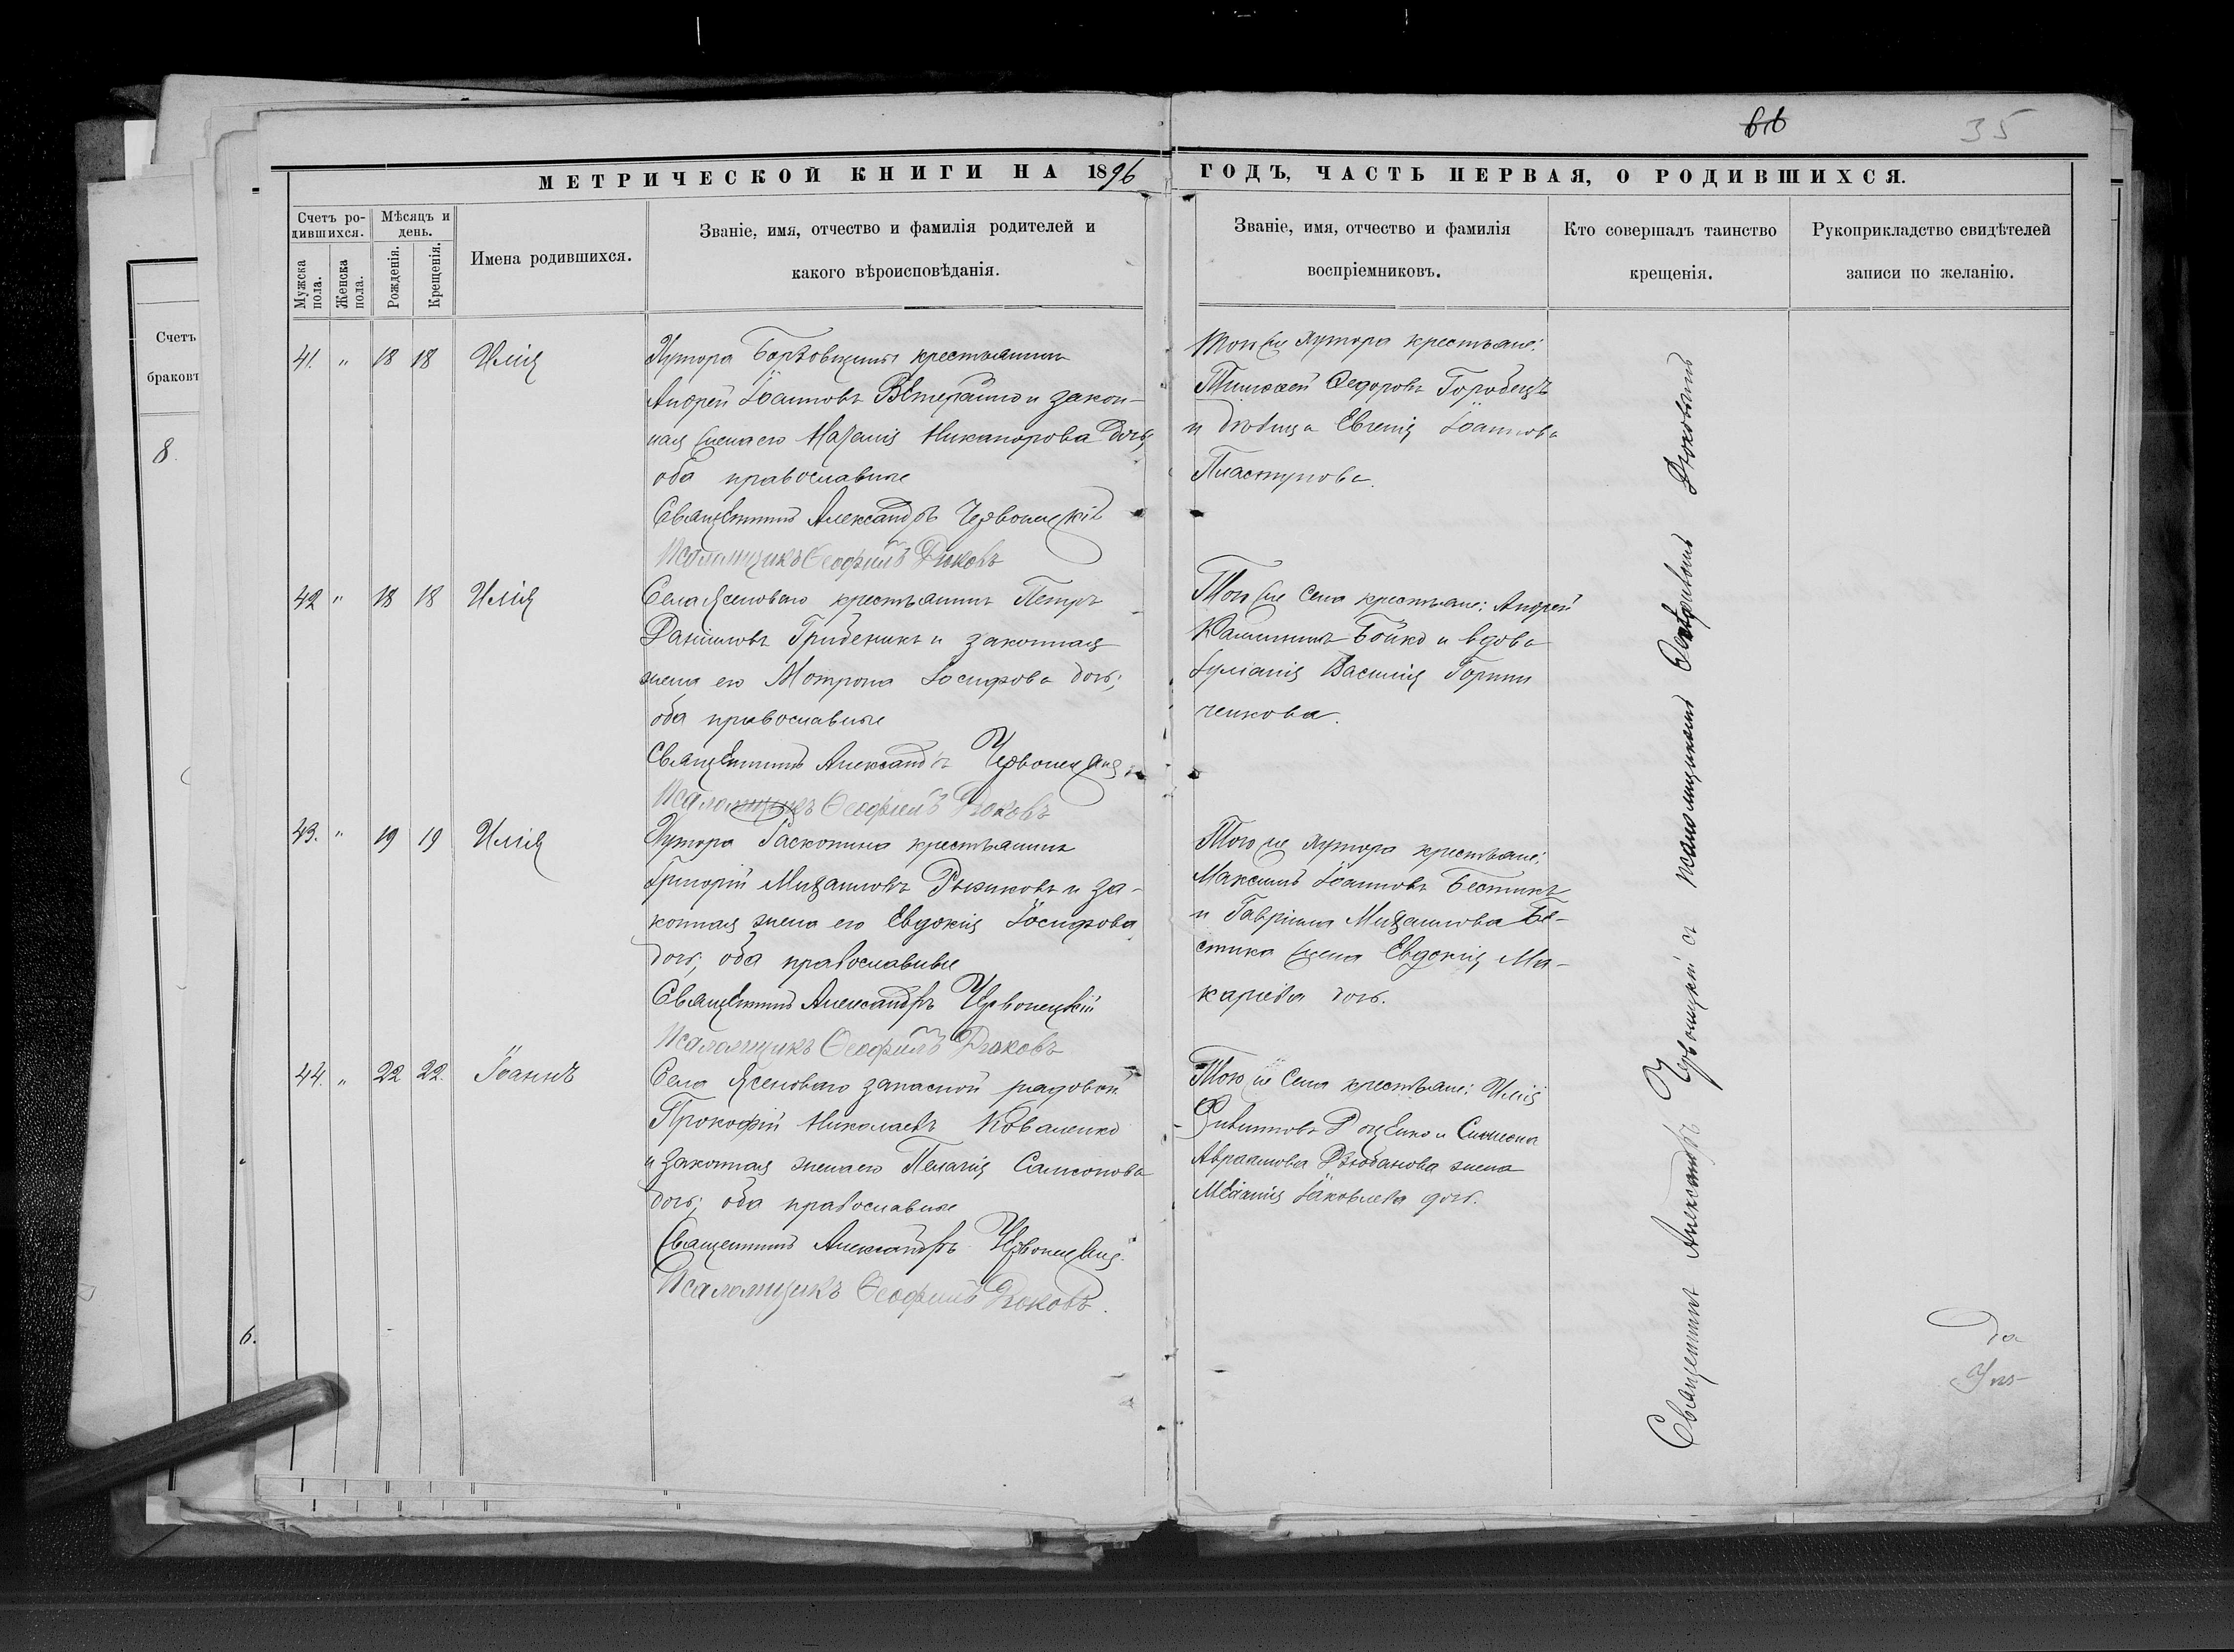 66 35
МЕТРИЧЕСКОЙ КНИГИ НА 1896 ГОДЪ, ЧАСТЬ ПЕРВАЯ, О РОДИВШИХСЯ.
Счетъ ро-
дившихся.
Мужска
пола.
Женска
пола.
Мѣсяцъ и
день.
Рожденія.
Крещенія.
Имена родившихся.
Званіе, имя, отчество и фамилія родителей и
какого вѣроисповѣданія.
Званіе, имя, отчество и фамилія
воспріемниковъ.
Кто совершалъ таинство
крещенія.
Рукоприкладство свидѣтелей
записи по желанію.
Счетъ
браковъ
8.
6.
41. " 18 18 Илія
Хутора крестьянинъ
Андрей Іоанновъ и закон-
ная жена его Никанорова дочь,
оба православные
Священникъ Александръ Червонецкій
Псаломщикъ Ѳеофилъ Дюковъ
Того же хутора крестьяне:
Тимофей Ѳедоровъ Горобецъ
и дѣвица Евгенія Іоаннова
Пластунова.
42 " 18 18 Илія
Села Ясеноваго крестьянинъ Петръ
Даніиловъ Грибеникъ и законная
жена его Мотрона Іосифова дочь;
оба православные
Священникъ Александръ Червонецкій
Псаломщикъ Ѳеофилъ Дюковъ
Того же села крестьяне: Андрей
Калининъ Бойко и вдова
Іуліанія Василія Горпин
ченкова.
43. " 19 19 Илія
Хутора Раскопина крестьянинъ
Григорій Михаиловъ Рыжиковъ и за-
конная жена его Евдокія Іосифова
дочь, оба православные
Священникъ Александръ Червонецкій
Псаломщикъ Ѳеофилъ Дюковъ
Того же хутора крестьяне:
Максимъ Іоанновъ Бестикъ
и Гавріила Михаилова Бе-
стика жена Евдокія Ма-
каріева дочь.
44. " 22 22. Іоаннъ
Села Ясеноваго запасной рядовой
Прокофій Николаевъ Коваленко
и законная жена его Пелагія Самсонова
дочь; оба православные
Священникъ Александръ Червонецкій
Псаломщикъ Ѳеофилъ Дюковъ.
Того же села крестьяне: Илія
Филипповъ и Симеона
Авраамова жена
Меланія Іаковлева дочь.
Священникъ Александръ Червонецкій съ псаломщикомъ Ѳеофиломъ Дюковымъ
да